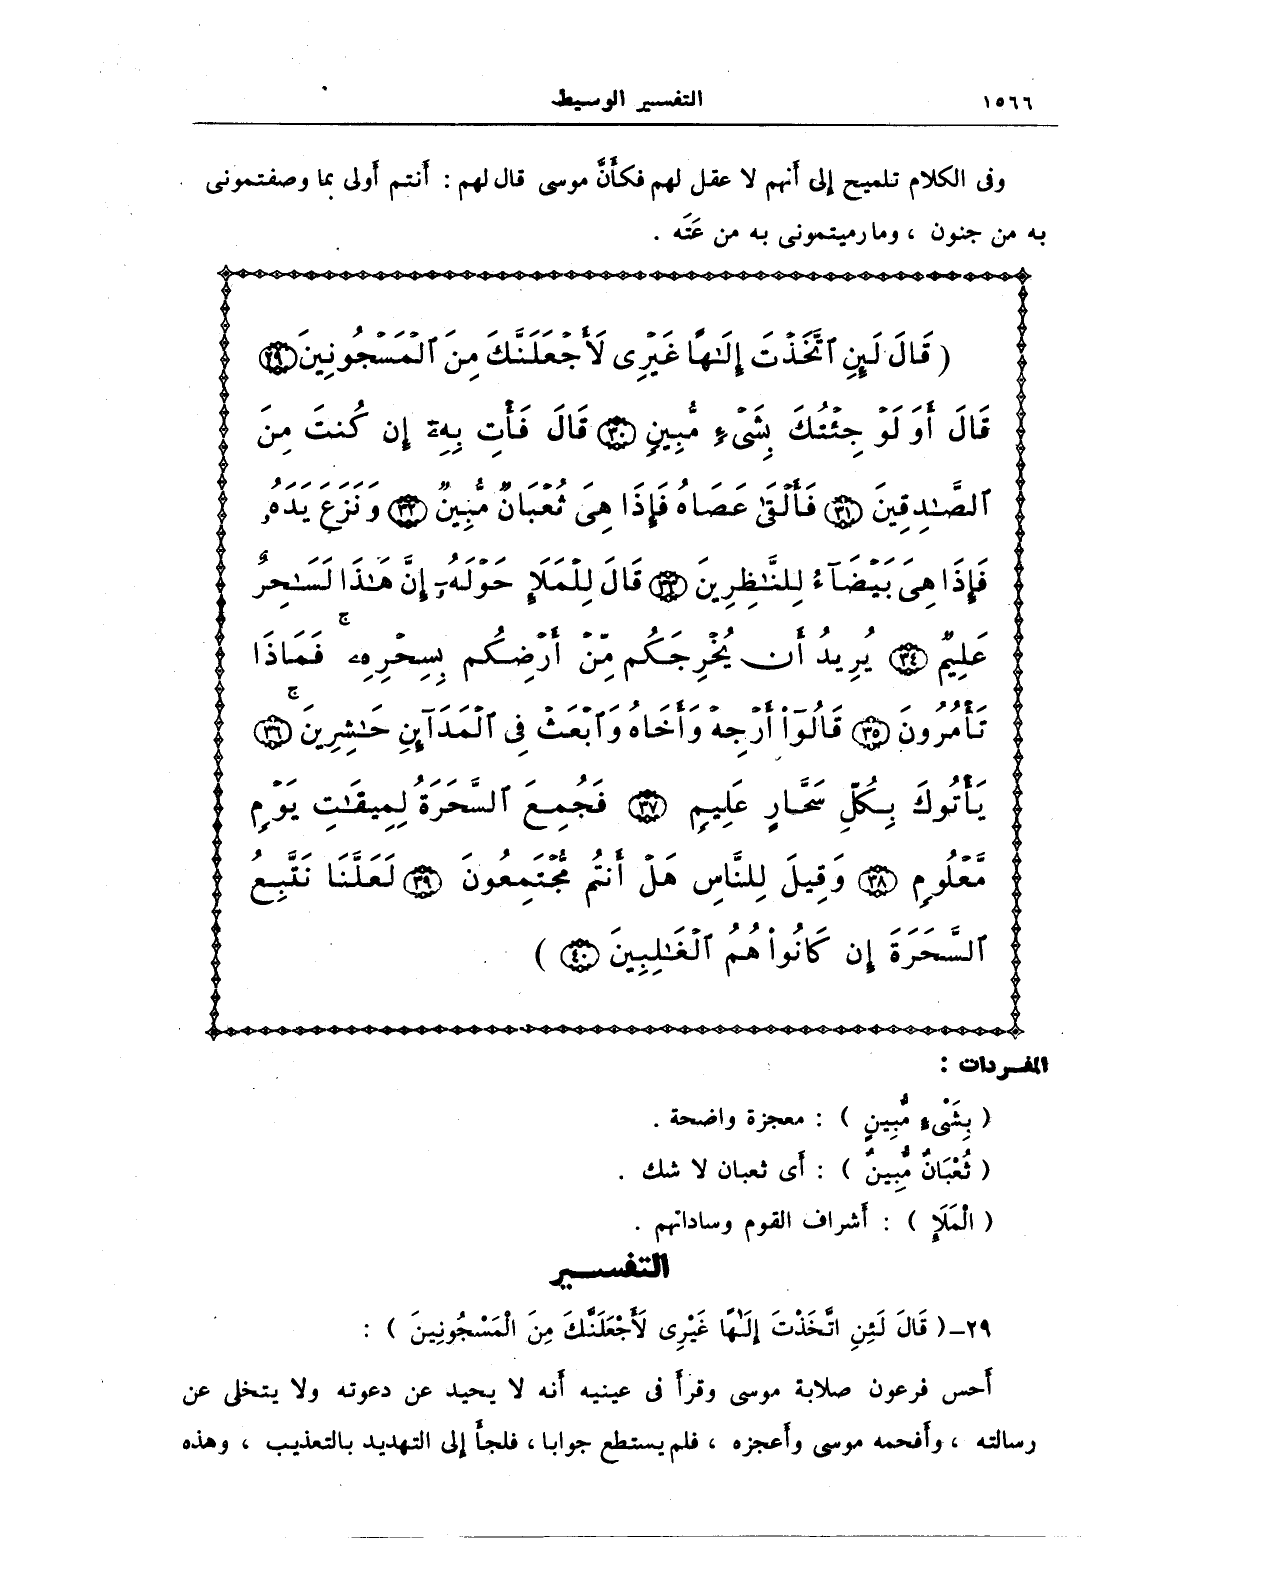 ١٥٦٦ التفسير الوسيط
وفى الكلام تلميح إلى أنهم لا عقل لهم فكأنَّ موسى قال لهم : أنتم أولى بما وصفتمونى
به من جنون ، وما رميتمونى به من عَتَه .
( قَالَ لَئِنِ ٱتَّخَذْتَ إِلَٰهًا غَيْرِى لَأَجْعَلَنَّكَ مِنَ ٱلْمَسْجُونِينَ ٢٩
قَالَ أَوَلَوْ جِئْتُكَ بِشَىْءٍ مُّبِينٍ ٣٠ قَالَ فَأْتِ بِهِۦٓ إِن كُنتَ مِنَ
ٱلصَّٰدِقِينَ ٣١ فَأَلْقَىٰ عَصَاهُ فَإِذَا هِىَ ثُعْبَانٌ مُّبِينٌ ٣٢ وَنَزَعَ يَدَهُۥ
فَإِذَا هِىَ بَيْضَآءُ لِلنَّٰظِرِينَ ٣٣ قَالَ لِلْمَلَإِ حَوْلَهُۥٓ إِنَّ هَٰذَا لَسَٰحِرٌ
عَلِيمٌ ٣٤ يُرِيدُ أَن يُخْرِجَكُم مِّنْ أَرْضِكُم بِسِحْرِهِۦ ۚ فَمَاذَا
تَأْمُرُونَ ٣٥ قَالُوٓا۟ أَرْجِهْ وَأَخَاهُ وَٱبْعَثْ فِى ٱلْمَدَآئِنِ حَٰشِرِينَ ٣٦
يَأْتُوكَ بِكُلِّ سَحَّارٍ عَلِيمٍ ٣٧ فَجُمِعَ ٱلسَّحَرَةُ لِمِيقَٰتِ يَوْمٍ
مَّعْلُومٍ ٣٨ وَقِيلَ لِلنَّاسِ هَلْ أَنتُم مُّجْتَمِعُونَ ٣٩ لَعَلَّنَا نَتَّبِعُ
ٱلسَّحَرَةَ إِن كَانُوا۟ هُمُ ٱلْغَٰلِبِينَ ٤٠ )
المفـردات :
( بِشَىْءٍ مُّبِينٍ ) : معجزة واضحة .
( ثُعْبَانٌ مُّبِينٌ ) : أى ثعبان لا شك .
( الْمَلَإِ ) : أشراف القوم وساداتهم .
التفســـير
٢٩ـ ( قَالَ لَئِنِ اتَّخَذْتَ إِلَٰهًا غَيْرِى لَأَجْعَلَنَّكَ مِنَ الْمَسْجُونِينَ ) :
أحس فرعون صلابة موسى وقرأ فى عينيه أنه لا يحيد عن دعوته ولا يتخلى عن
رسالته ، وأفحمه موسى وأعجزه ، فلم يستطع جوابا ، فلجأ إلى التهديد بالتعذيب ، وهذه